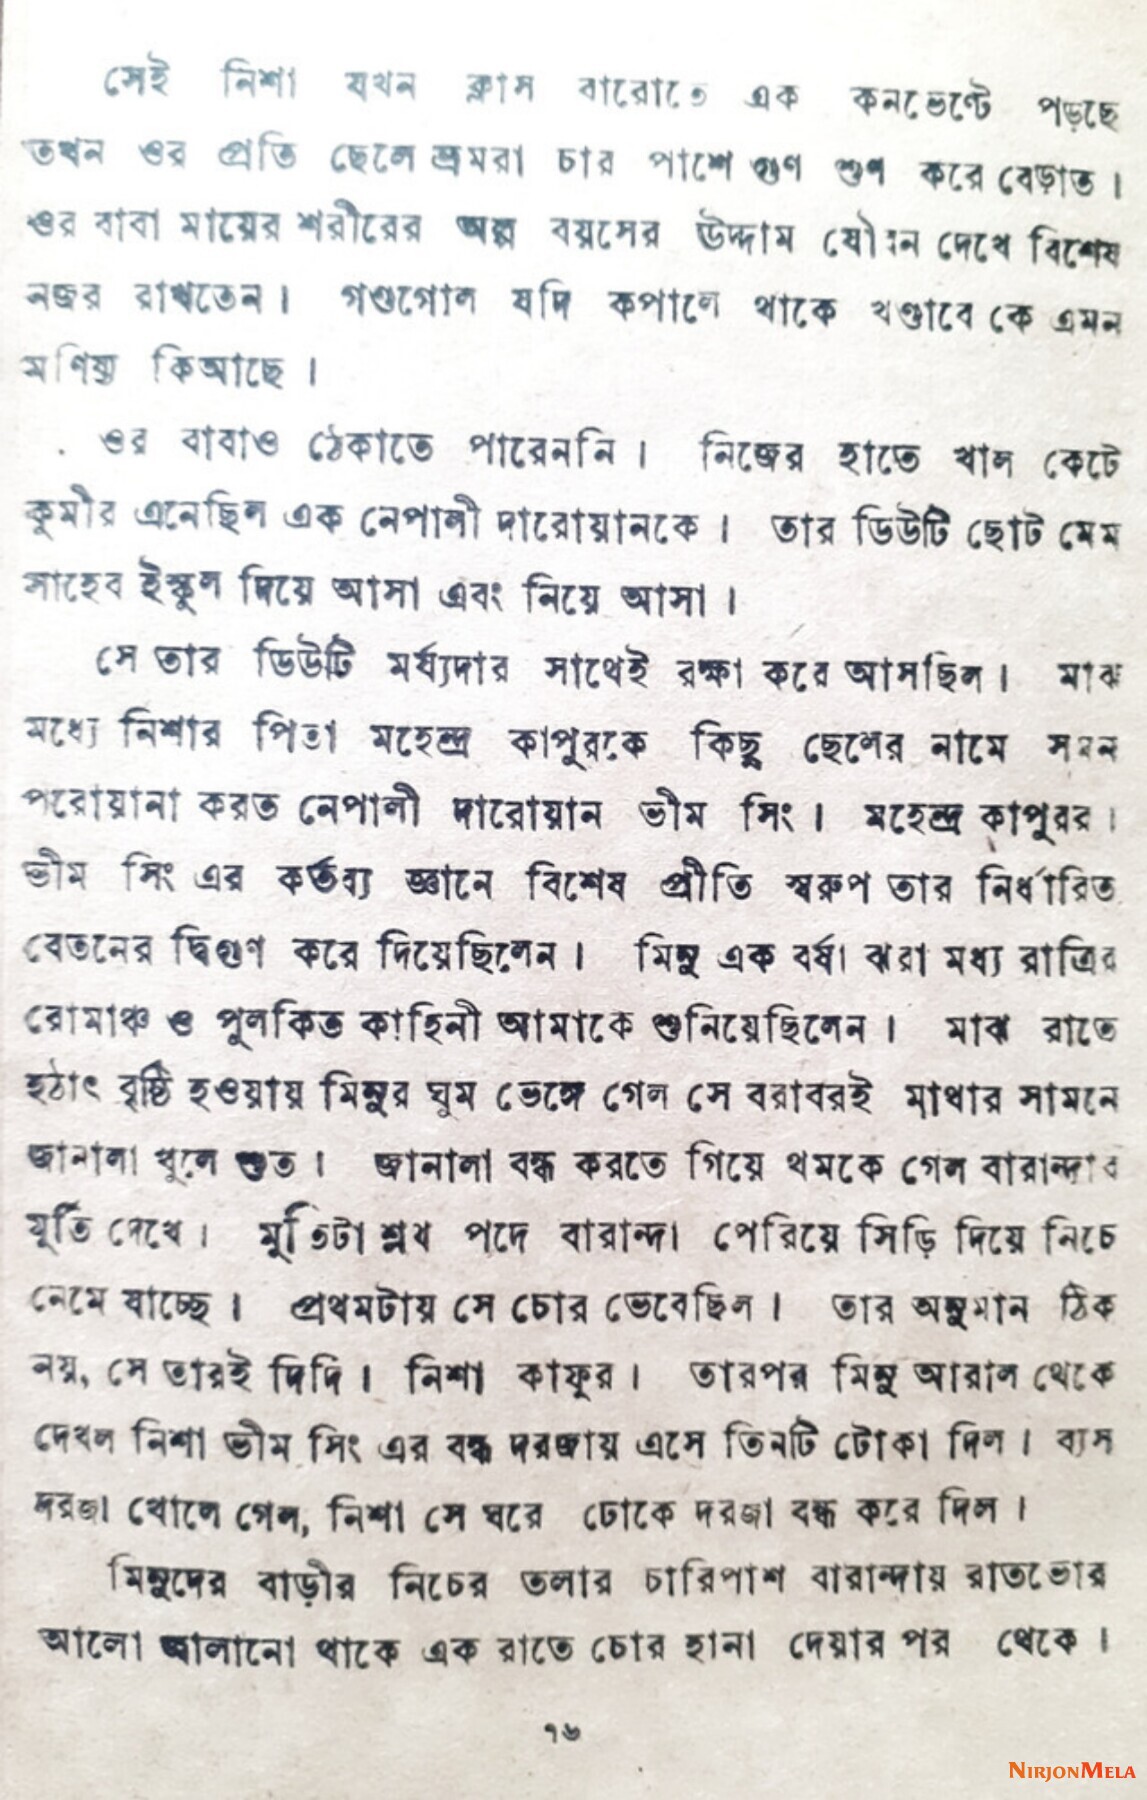 সেই নিশা যখন ক্লাস বারোতে এক কনভেণ্টে পড়ছে
তখন ওর প্রতি ছেলে ভ্রমরা চার পাশে গুণ গুণ করে বেড়াত।
ওর বাবা মায়ের শরীরের অল্প বয়সের উদ্দাম দেখে বিশেষ
নজর রাখতেন। গণ্ডগোল যদি কপালে থাকে খণ্ডাবে কে এমন
মণিষ্য কিআছে।
ওর বাবাও ঠেকাতে পারেননি। নিজের হাতে খাল কেটে
কুমীর এনেছিল এক নেপালী দারোয়ানকে। তার ডিউটি ছোট মেম
সাহেব ইস্কুল দিয়ে আসা এবং নিয়ে আসা।
সে তার ডিউটি মর্য্যদার সাথেই রক্ষা করে আসছিল। মাঝ
মধ্যে নিশার পিতা মহেন্দ্র কাপুরকে কিছু ছেলের নামে
পরোয়ানা করত নেপালী দারোয়ান ভীম সিং। মহেন্দ্র কাপুরর।
ভীম সিং এর কর্তব্য জ্ঞানে বিশেষ প্রীতি স্বরুপ তার নির্ধারিত
বেতনের দ্বিগুণ করে দিয়েছিলেন। মিনু এক বর্ষা ঝরা মধ্য রাত্রির
রোমাঞ্চ ও পুলকিত কাহিনী আমাকে শুনিয়েছিলেন। মাঝ রাতে
হঠাৎ বৃষ্টি হওয়ায় মিনুর ঘুম ভেঙ্গে গেল সে বরাবরই মাথার সামনে
জানালা খুলে শুত। জানালা বন্ধ করতে গিয়ে থমকে গেল বারান্দার
মুর্তি দেখে। মুর্তিটা শ্লথ পদে বারান্দা পেরিয়ে সিড়ি দিয়ে নিচে
নেমে যাচ্ছে। প্রথমটায় সে চোর ভেবেছিল। তার অনুমান ঠিক
নয়, সে তারই দিদি। নিশা কাফুর। তারপর মিনু আরাল থেকে
দেখল নিশা ভীম সিং এর বন্ধ দরজায় এসে তিনটি টোকা দিল। ব্যস
দরজা খোলে গেল, নিশা সে ঘরে ঢোকে দরজা বন্ধ করে দিল।
মিনুদের বাড়ীর নিচের তলার চারিপাশ বারান্দায় রাতভোর
আলো জ্বালানো থাকে এক রাতে চোর হানা দেয়ার পর থেকে।
১৬
NIRJONMELA